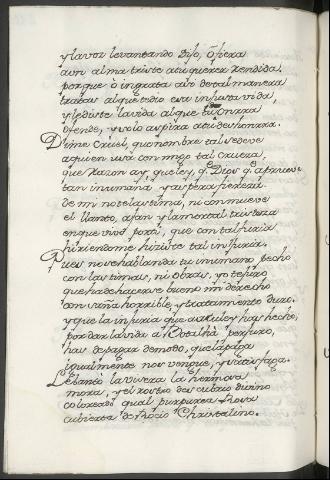 y la voz levantando Dijo, ô fiera
aun alma triste atu querer Rendida.
porque ô ingrata así de tal manera
tratas al que te dio esa injusta vida,
y le diste la vida al que tu onrra
ofende, y solo aspira atu deshonrra.
Dime Cruel, que nombre tal se deve
a quien usa con migo tal crueza,
que Razon ay, que ley, q. Dios q. aprueve
tan inumana, y aspera fiereza
de mi no te lastima, ni conmueve
el llanto, afan y lamortal tristeza
en que vivo por ti, que con tal furia
hiriendome hiziste tal injuria.
Pues no se hablanda tu inumano pecho
con lastimas, ni obras, yo te juro
que ha de hacerse bueno mi derecho
con saña horrible, y tratamiento duro.
y que la injuria que a Muley has hecho,
por dar la vida a perjuro,
has de pagar de modo, que la paga
igualmente nos vengue, y satisfaga.
Lebantò la visera la hermosa
mora, y el rostro descubrio divino
coloreado qual purpurea Rosa
cubierta de Rocio Christalino.